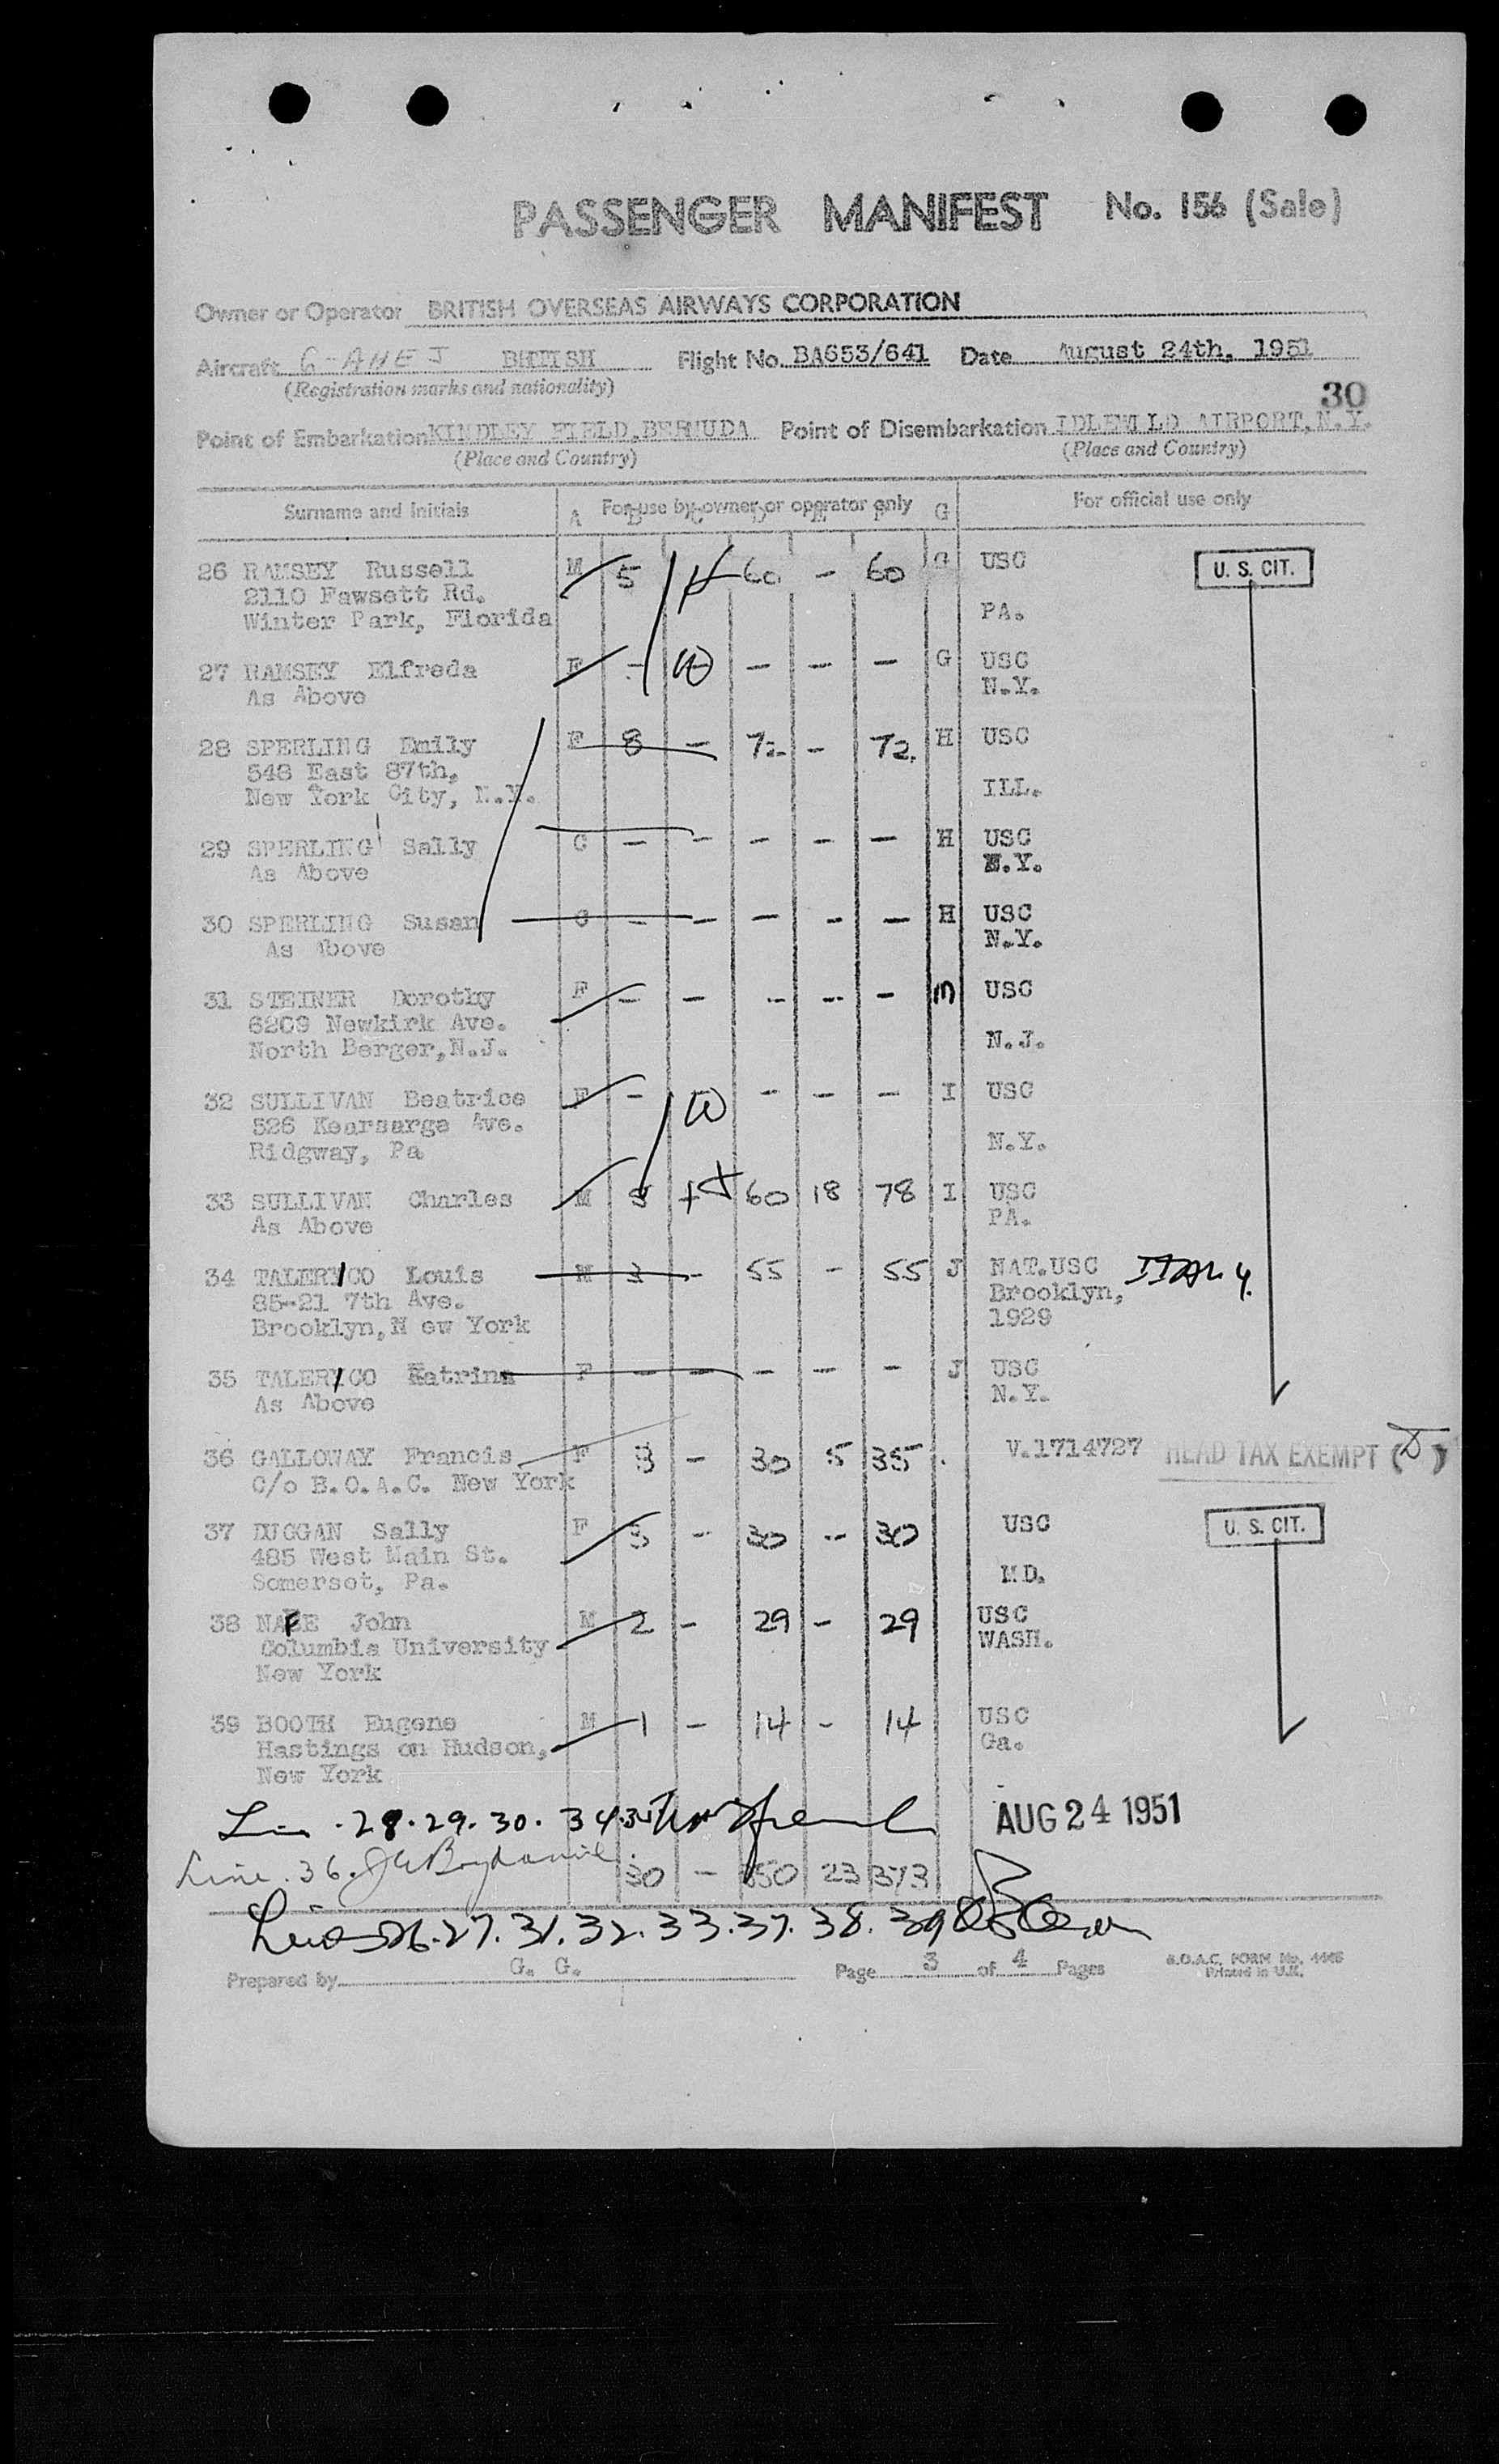 PASSENGER MANIFEST No. 156 (Sale)
Owner or Operator BRITISH OVERSEAS AIRWAYS CORPORATION
Aircraft G-AHEJ BRITISH Flight No. BA653/641 Date August 24th, 1951
(Registration marks and nationality)
30
Point of Embarkation KINDLEY FIELD, BERMUDA Point of Disembarkation IDLEWILD AIRPORT, N.Y.
(Place and Country) (Place and Country)
Surname and Initials A For use by owner or operator only G For official use only
26 RAMSEY Russell M 5 60 - 60 G USC U. S. CIT.
2110 Fawsett Rd.
Winter Park, Florida PA.
27 RAMSEY Elfreda F - W - - - G USC
As Above N.Y.
28 SPERLING Emily F 8 - 72 - 72. H USC
548 East 87th,
New York City, N.Y. ILL.
29 SPERLING Sally C - - - - - H USC
As Above N.Y.
30 SPERLING Susan C - - - - - H USC
As Above N.Y.
31 STEINER Dorothy F - - - - - USC
6209 Newkirk Ave.
North Berger, N.J. N.J.
32 SULLIVAN Beatrice F - W - - - I USC
526 Kearsarge Ave.
Ridgway, Pa N.Y.
33 SULLIVAN Charles M 3 + 60 18 78 I USC
As Above PA.
34 TALERICO Louis M 3 - 55 - 55 J NAT.USC ITALY.
85-21 7th Ave. Brooklyn,
Brooklyn, N ew York 1929
35 TALERICO Katrina F - - - - - J USC
As Above N.Y.
36 GALLOWAY Francis F 3 - 30 5 35 V.1714727 HEAD TAX EXEMPT (D)
C/o B.O.A.C. New York
37 DUGGAN Sally F 3 - 30 - 30 USC U. S. CIT.
485 West Main St.
Somerset, Pa. MD.
38 NAFE John M 2 - 29 - 29 USC
Columbia University WASH.
New York
39 BOOTH Eugene M 1 - 14 - 14 USC
Hastings on Hudson, Ga.
New York
28. 29. 30. 34. 35 AUG 24 1951
Line. 36.
30 - 350 23 373
Lines 26. 27. 31. 32. 33. 37. 38. 39
Prepared by G. G. Page 3 of 4 Pages B.O.A.C. FORM No. 4446
Printed in U.K.